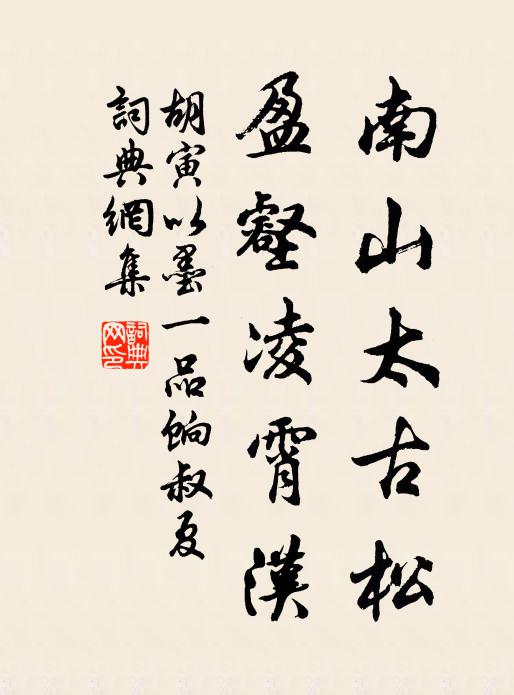 南山太古松
盈壑凌霄漢
胡寅以墨一品餉叔夏
詞典網集
詞典
网印